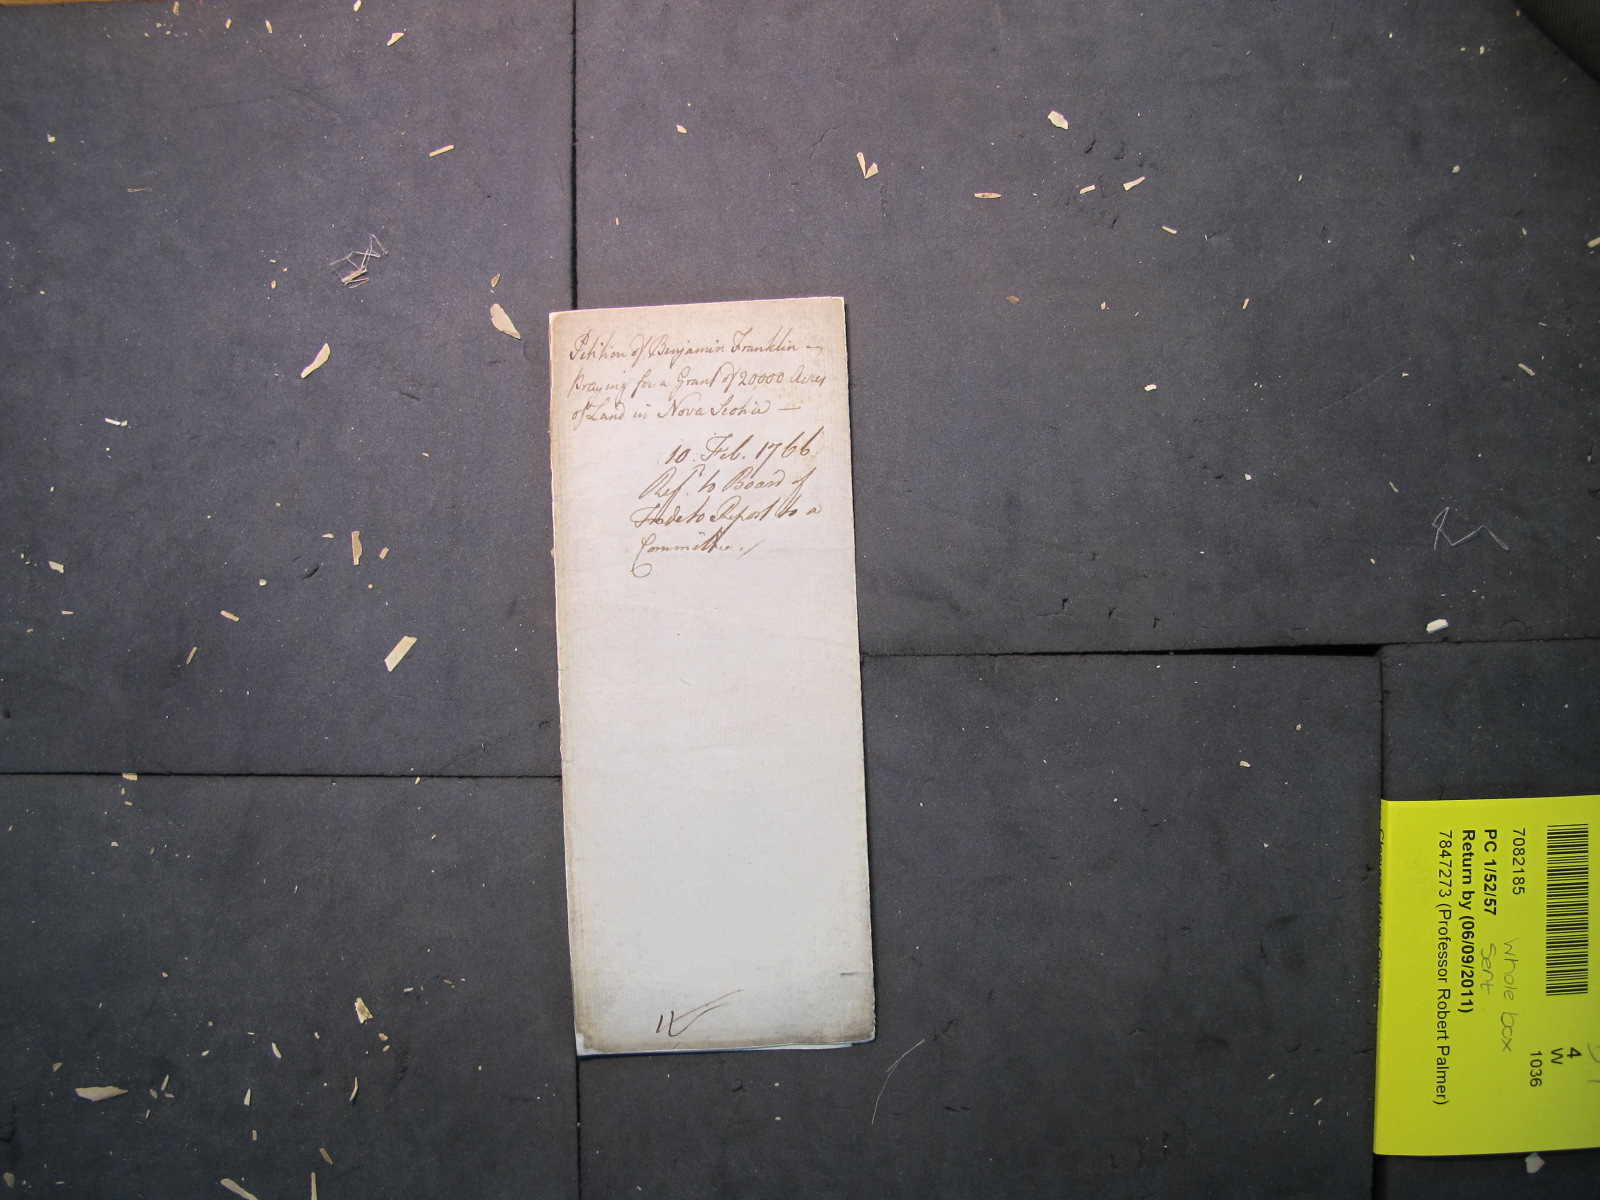 Petition of Benjamin Franklin —
praying for a Grant of 20000 Acres
of Land in Nova Scotia —
10. Feb. 1766
Refd. to Board of
Trade to Report to a
Committee ./
7082185
PC 1/52/57
Return by (06/09/2011)
7847273 (Professor Robert Palmer)
Whole box
Sent
4
W
1036